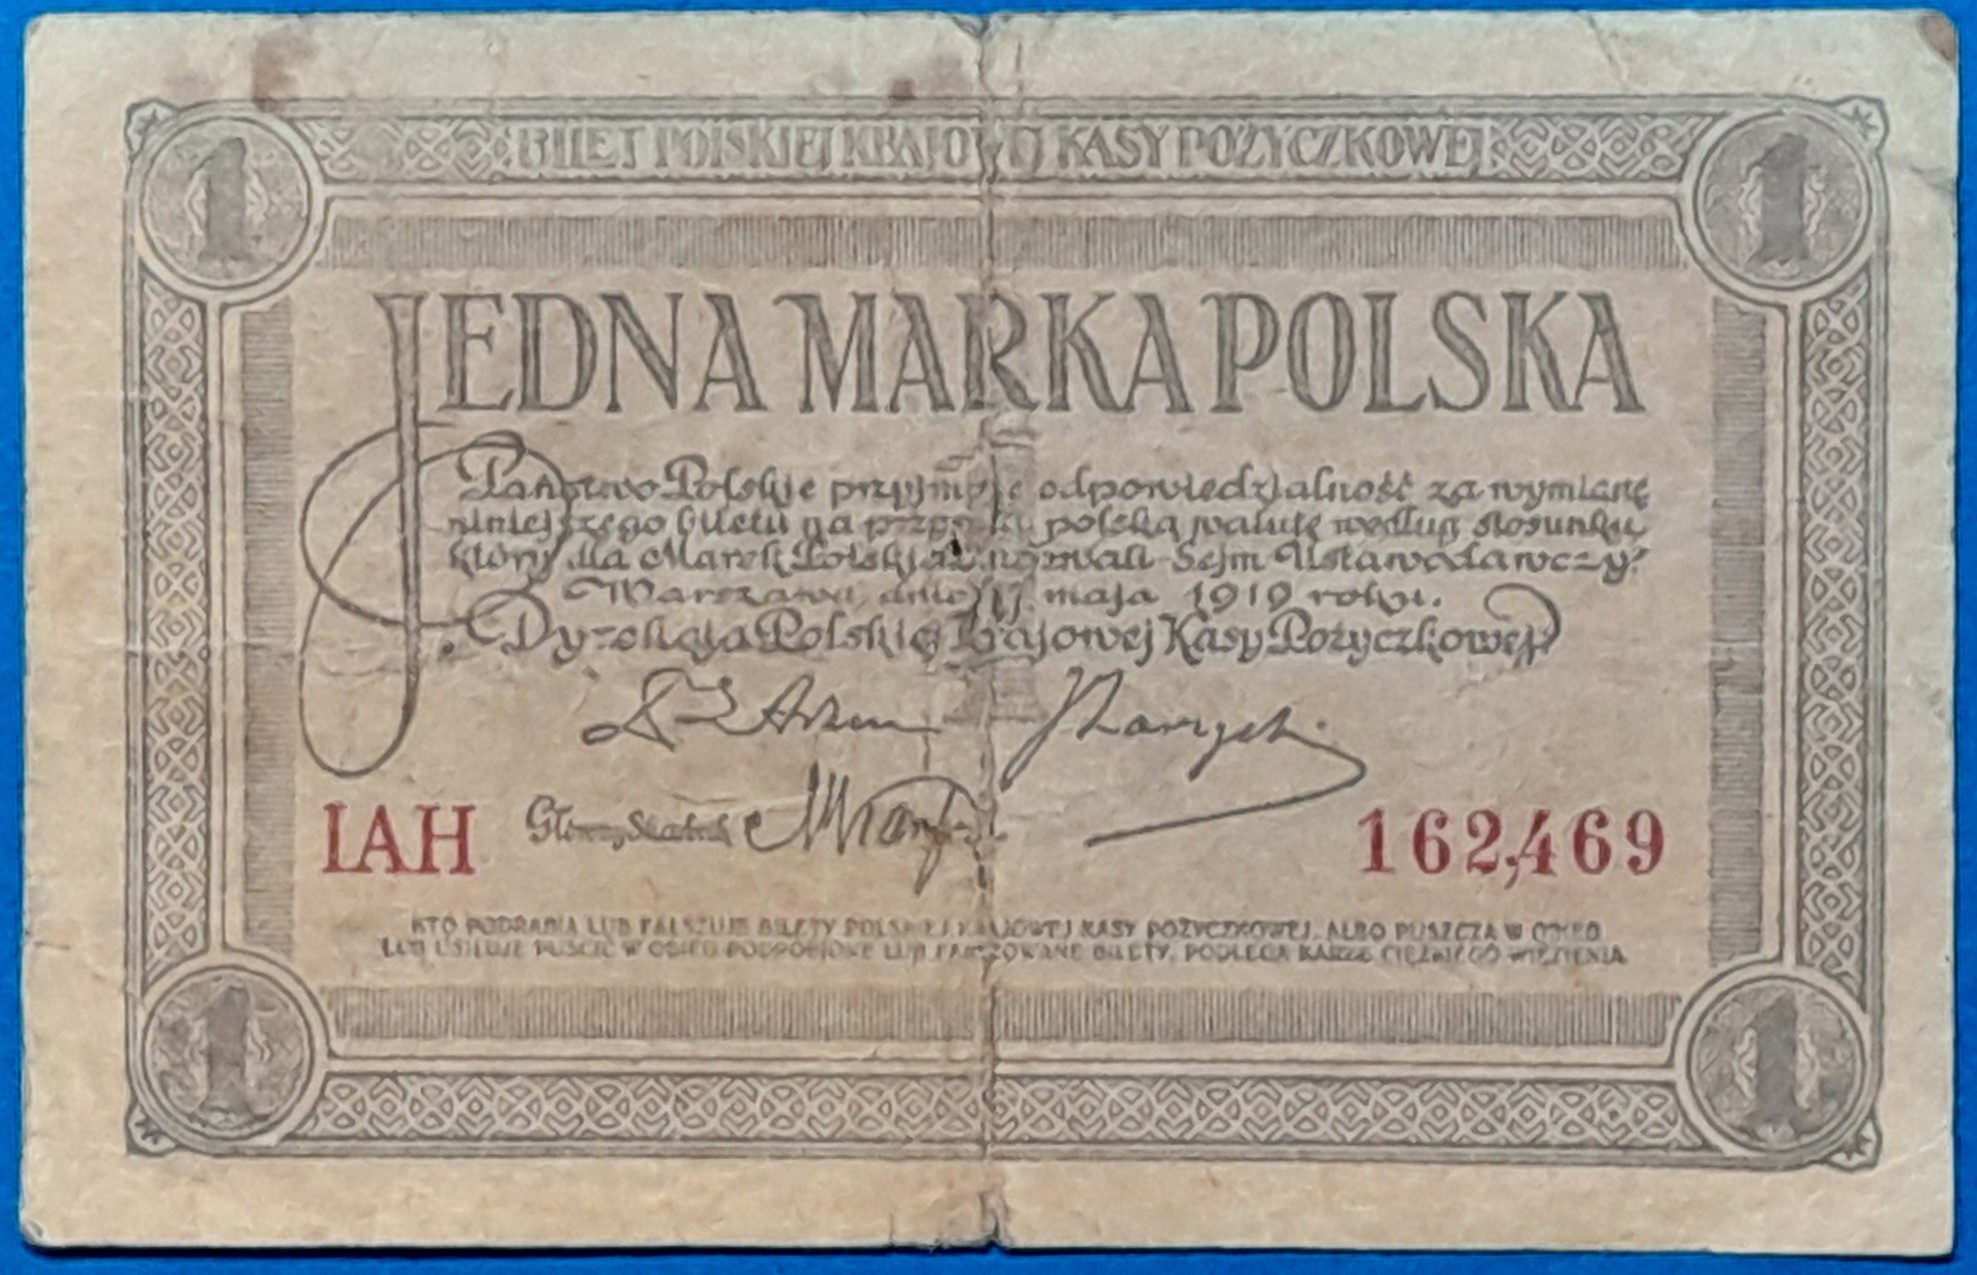 1 BILET POLSKIEJ KRAJOWEJ KASY POŻYCZKOWEJ 1
JEDNA MARKA POLSKA
Państwo Polskie przyjmuje odpowiedzialność za wymianę
niniejszego biletu na przyszłą polską walutę według stosunku,
który dla Marek Polskich uchwali Sejm Ustawodawczy.
Warszawa, dnia 17 maja 1919 roku.
Dyrekcja Polskiej Krajowej Kasy Pożyczkowej
IAH 162,469
KTO PODRABIA LUB FAŁSZUJE BILETY POLSKIEJ KRAJOWEJ KASY POŻYCZKOWEJ, ALBO PUSZCZA W OBIEG
LUB USIŁUJE PUŚCIĆ W OBIEG PODROBIONE LUB FAŁSZOWANE BILETY, PODLEGA KARZE CIĘŻKIEGO WIĘZIENIA
1 1